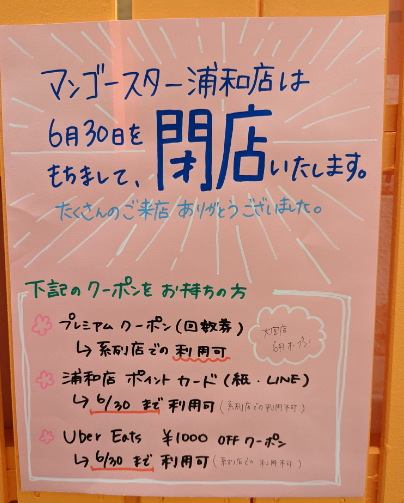 マンゴースター浦和店は
6月30日を
もちまして、閉店いたします。
たくさんのご来店 ありがとうございました。
下記のクーポンを お持ちの方
プレミアムクーポン(回数券)
↳ 系列店での利用可
大宮店
6月オープン!
浦和店 ポイントカード(紙・LINE)
↳ 6/30 まで 利用可(系列店での利用不可)
Uber Eats ¥1000 OFFクーポン
↳ 6/30 まで 利用可(系列店での利用不可)